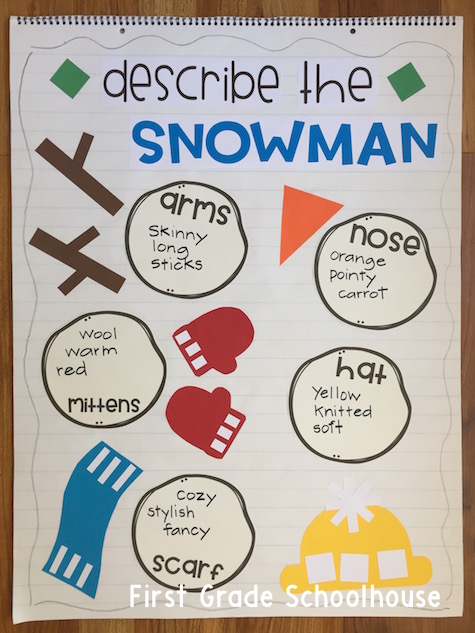 describe the
SNOWMAN
arms
Skinny
long
Sticks
nose
orange
pointy
carrot
wool
warm
red
mittens
hat
Yellow
knitted
soft
cozy
stylish
fancy
scarf
First Grade Schoolhouse